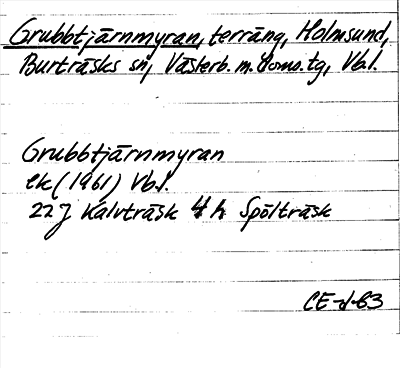 Grubbtjärnmyran, terräng, Holmsund,
Burträsks sn, Västerb. m. doms. tg, Vb.l.
Grubbtjärnmyran
ek (1961) Vb.l.
22J Kalvträsk 4h Spölträsk